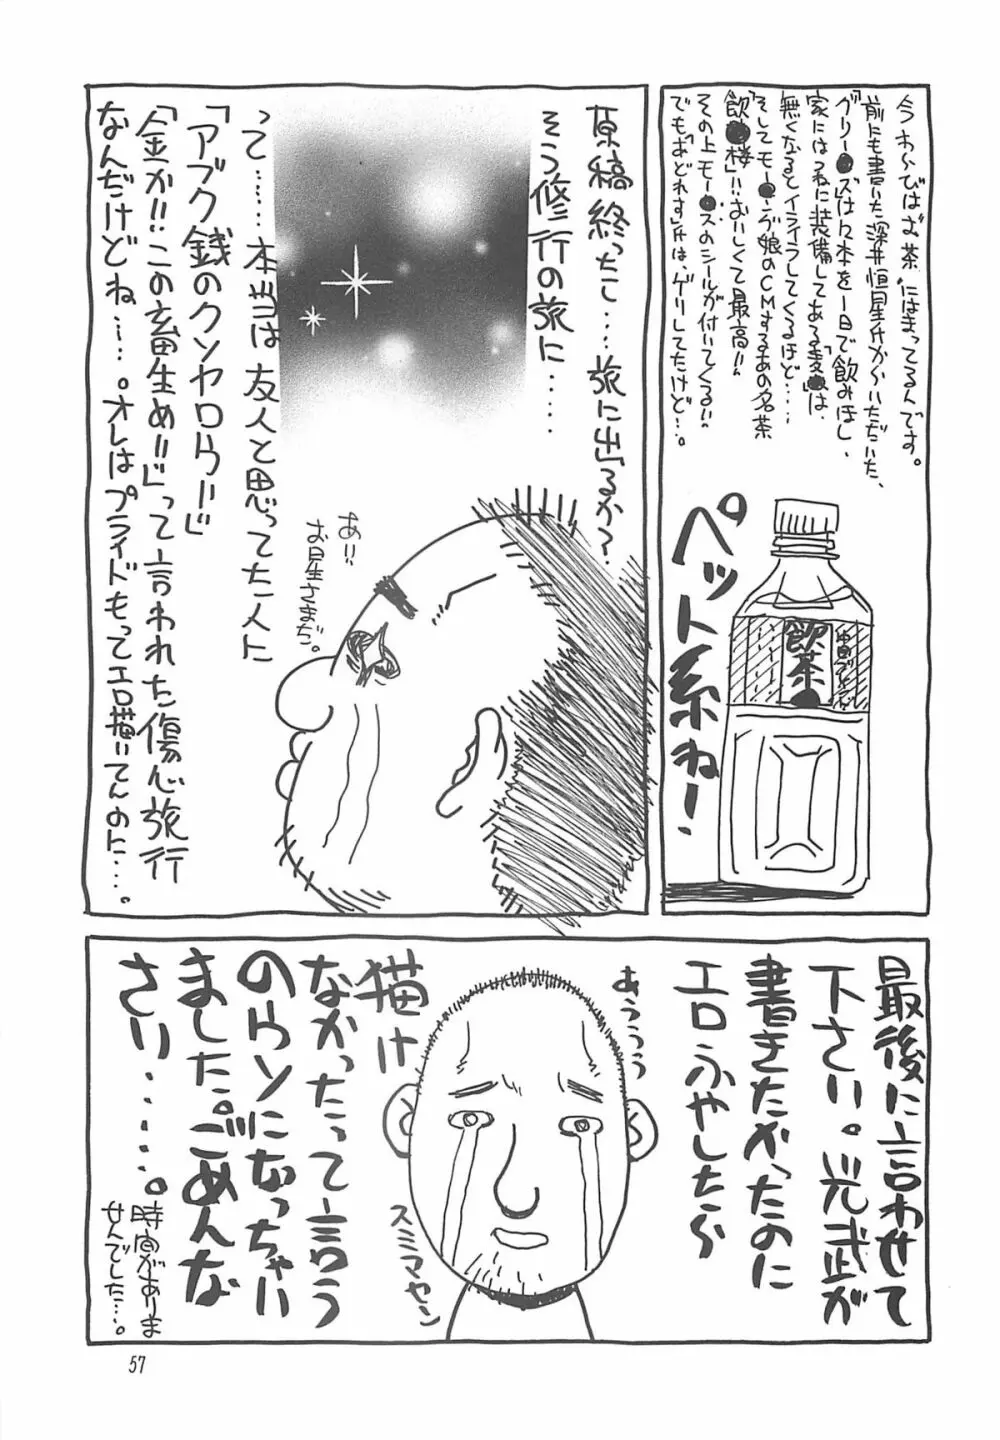 今わ〜ではお茶にはまってるんです。
前にも書いた深井恒星氏から、いただいた、
「グリー●ズ」はん本を一日で飲みほし、
家にはつねに装備してある「麦●」は、
無くなるとイライラしてくるほど…。
そしてモー●ング娘のCMするあの名茶
「飲●楼」!!おいしくて最高!!
その上モー●スのシールが付いてくる!!
でも「あどれす」氏は、ゲリしてたけど…。
ペット系ね！
飲茶●
原稿終わって…旅に出るか？
そう修行の旅に……
あ!!
お星さまだ。
って……本当は友人と思ってた人に
「アブク銭のクソヤロウ!!」
「金か!!この畜生め!!」って言われた傷心旅行
なんだけどね……。オレはプライドもってエロ描いてんのに……。
最後に言わせて
下さい。光武が
書きたかったのに
エロふやしたら
あううう
描け
なかったって言う
のウソになっちゃい
ました。ごめんな
さい……。
時間がありま
せんでした…。
スミマセン
57